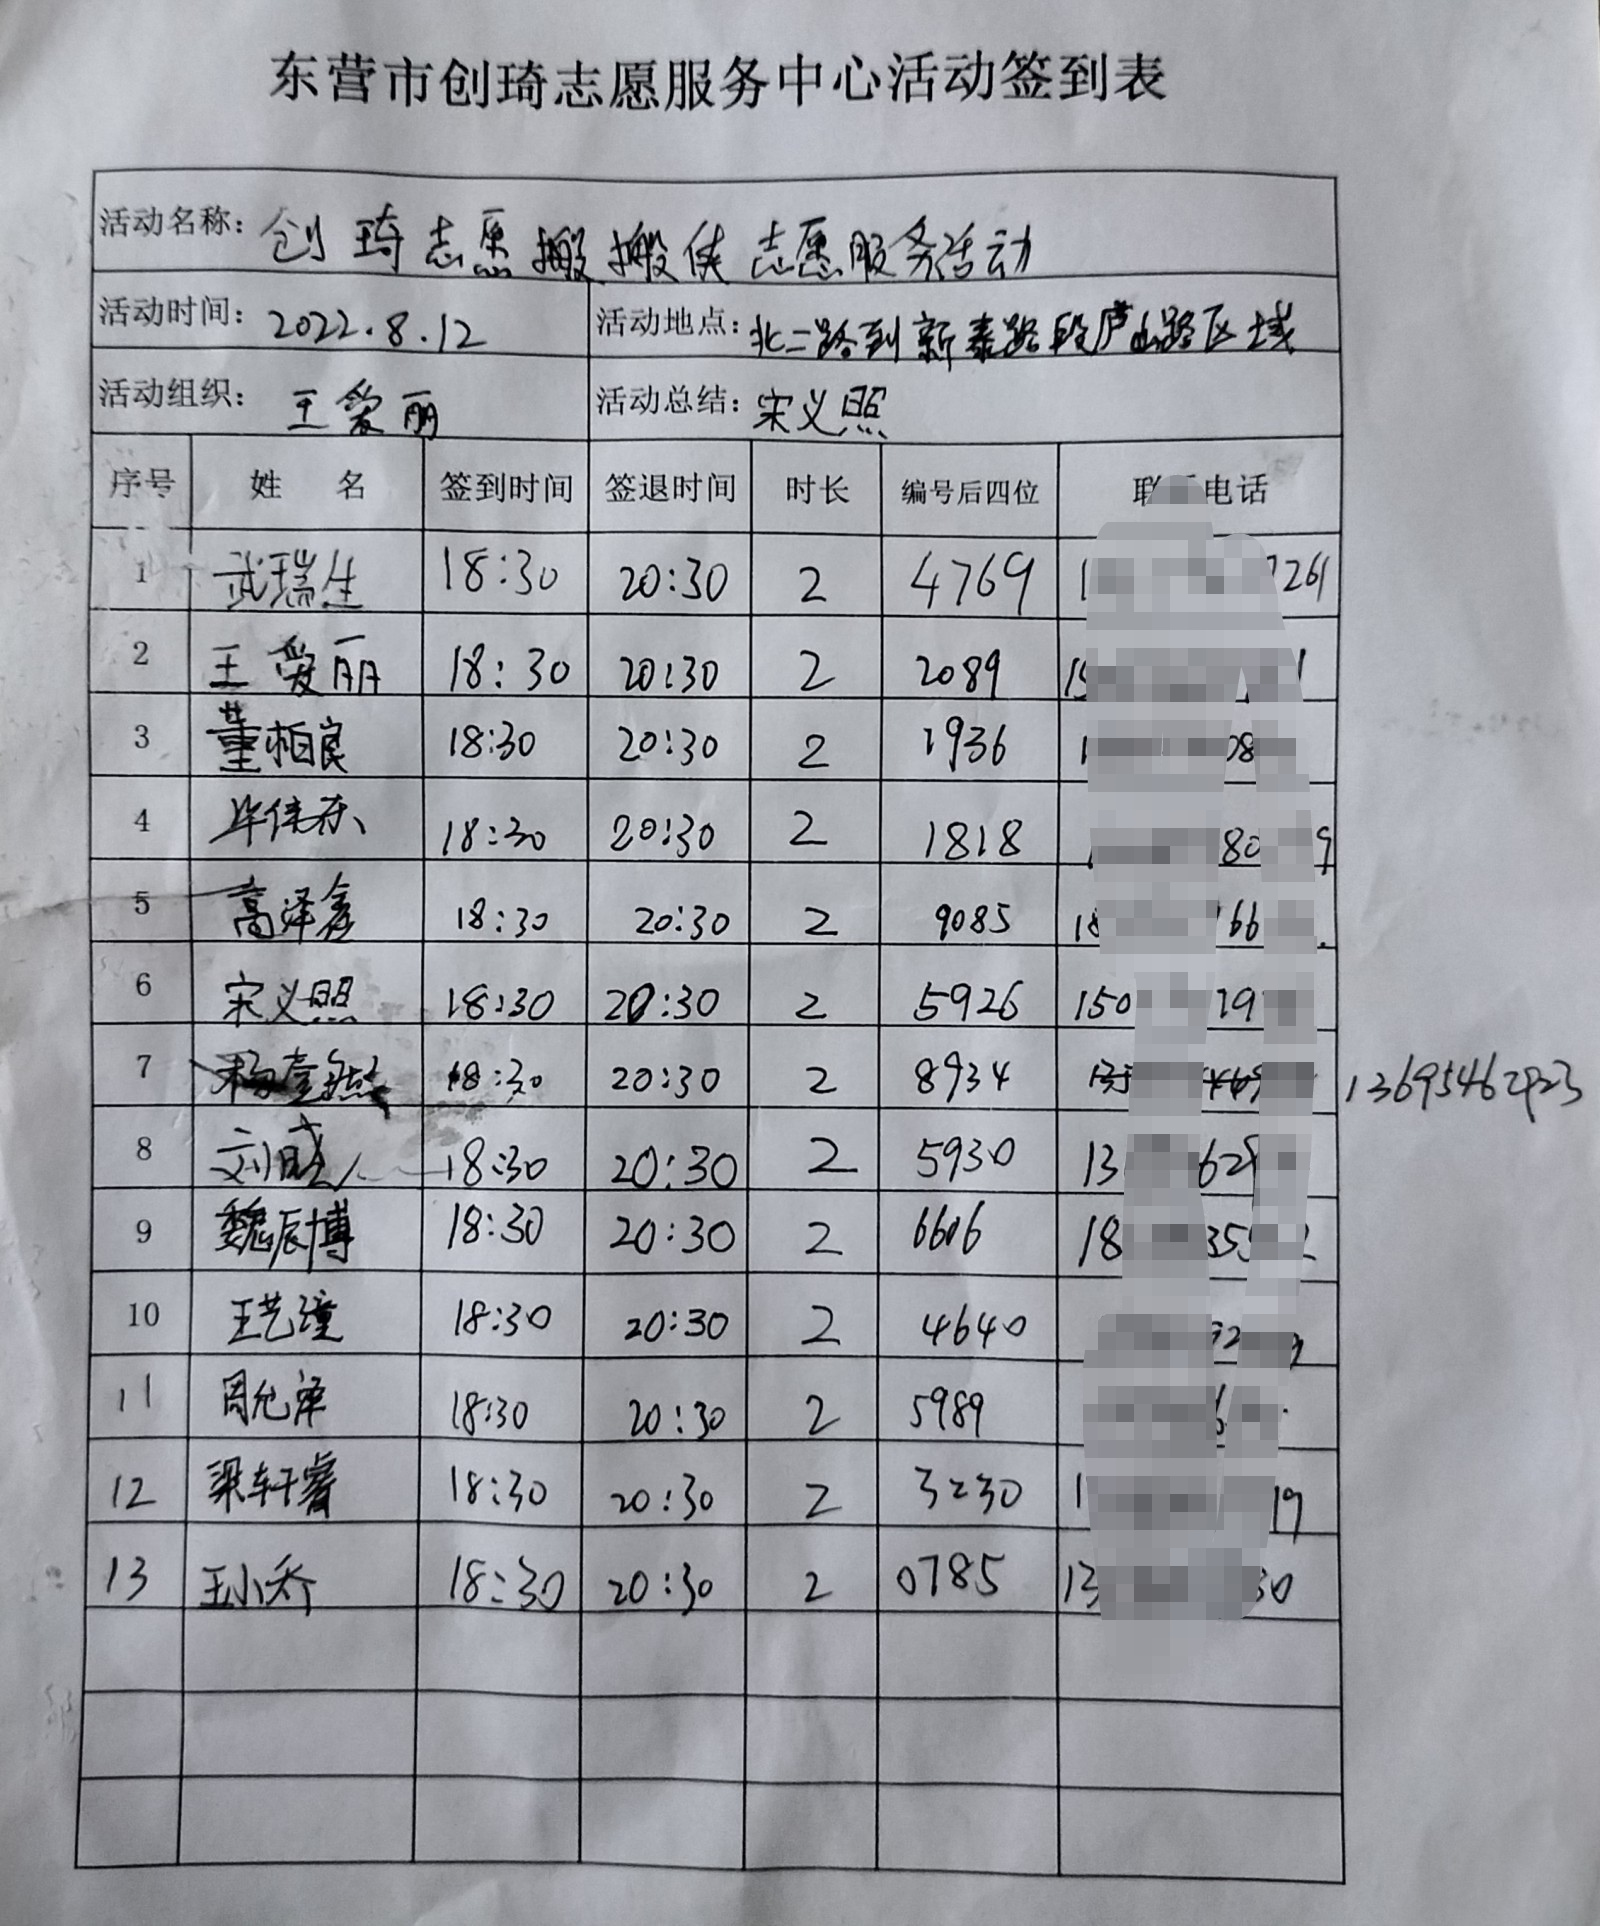 东营市创琦志愿服务中心活动签到表
活动名称：创琦志愿搬搬侠志愿服务活动
活动时间：2022.8.12 活动地点：北二路到新泰路段庐山路区域
活动组织：王爱丽 活动总结：宋义照
序号 姓名 签到时间 签退时间 时长 编号后四位 联 电话
1 武瑞生 18:30 20:30 2 4769 1 7261
2 王爱丽 18:30 20:30 2 2089 15 1
3 董柏良 18:30 20:30 2 1936 1 08
4 毕佳东 18:30 20:30 2 1818 80 9
5 高泽鑫 18:30 20:30 2 9085 18 166
6 宋义照 18:30 20:30 2 5926 150 19
7 18:30 20:30 2 8934 13695462923
8 刘晓人 18:30 20:30 2 5930 13 628
9 魏辰博 18:30 20:30 2 6606 18 355 2
10 王艺瞳 18:30 20:30 2 4640 92
11 周允泽 18:30 20:30 2 5989 6
12 梁轩睿 18:30 20:30 2 3230 1 19
13 王小乔 18:30 20:30 2 0785 13 30